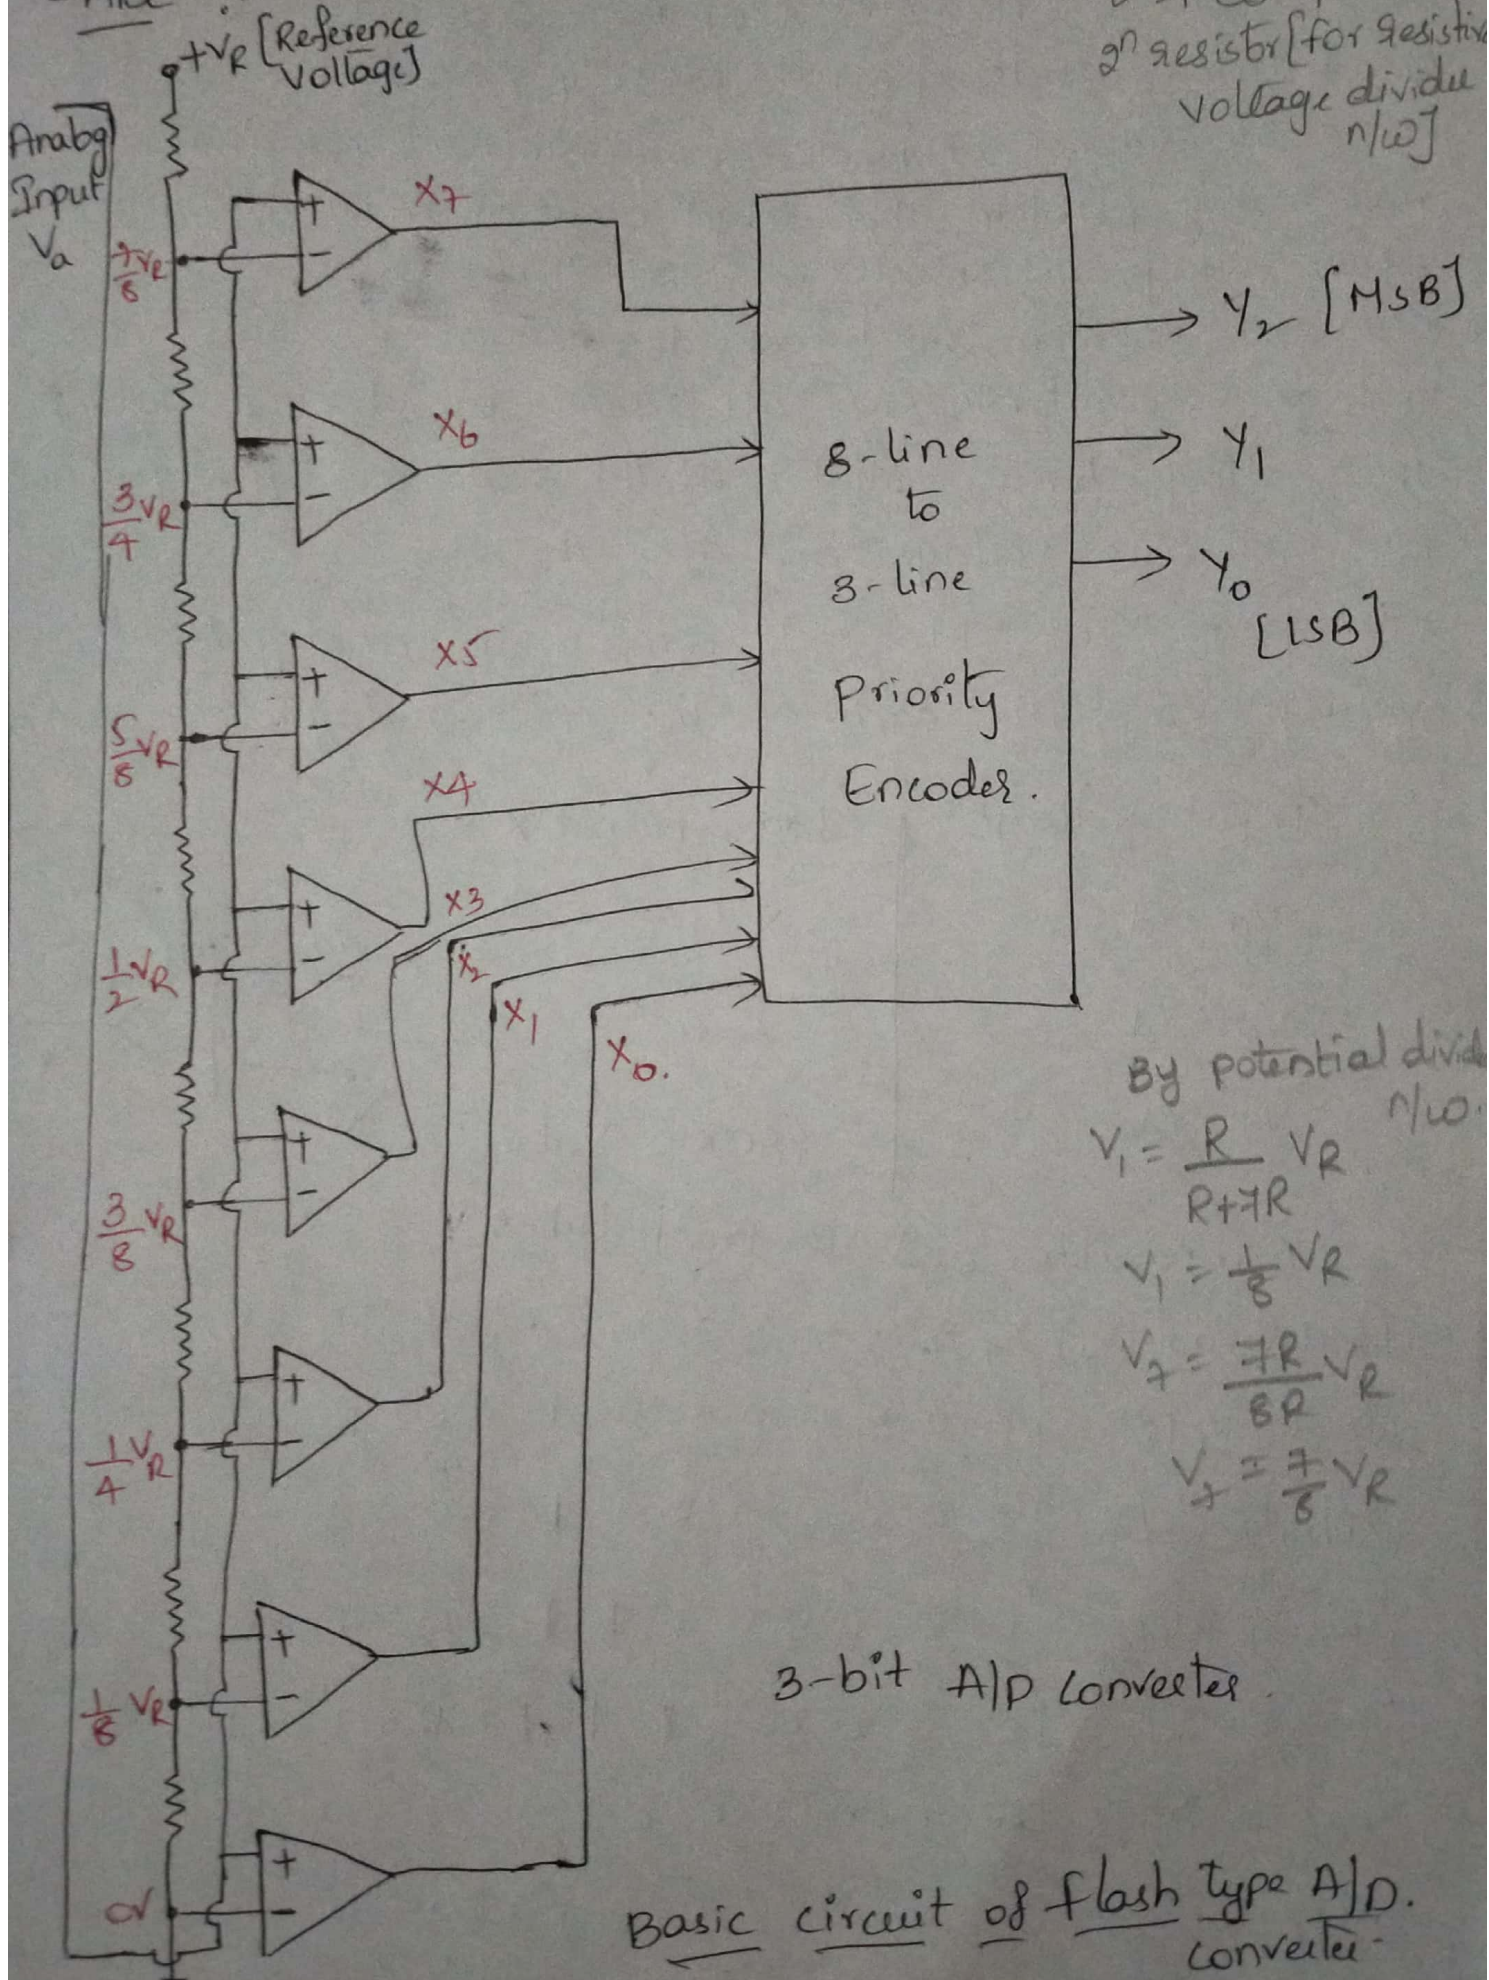 +VR [Reference
Voltage]
2ⁿ resistor [for resistive
voltage divider
n/w]
Analog
Input
Va
7/8 VR
3/4 VR
5/8 VR
1/2 VR
3/8 VR
1/4 VR
1/8 VR
0V
+
-
+
-
+
-
+
-
+
-
+
-
+
-
+
-
X7
X6
X5
X4
X3
X2
X1
X0.
8-line
to
3-line
Priority
Encoder.
Y2 [MSB]
Y1
Y0
[LSB]
By potential
n/w.
V1 = R/(R+7R) VR
V1 = 1/8 VR
V7 = 7R/8R VR
V7 = 7/8 VR
3-bit A/D Converter.
Basic circuit of flash type A/D.
converter.